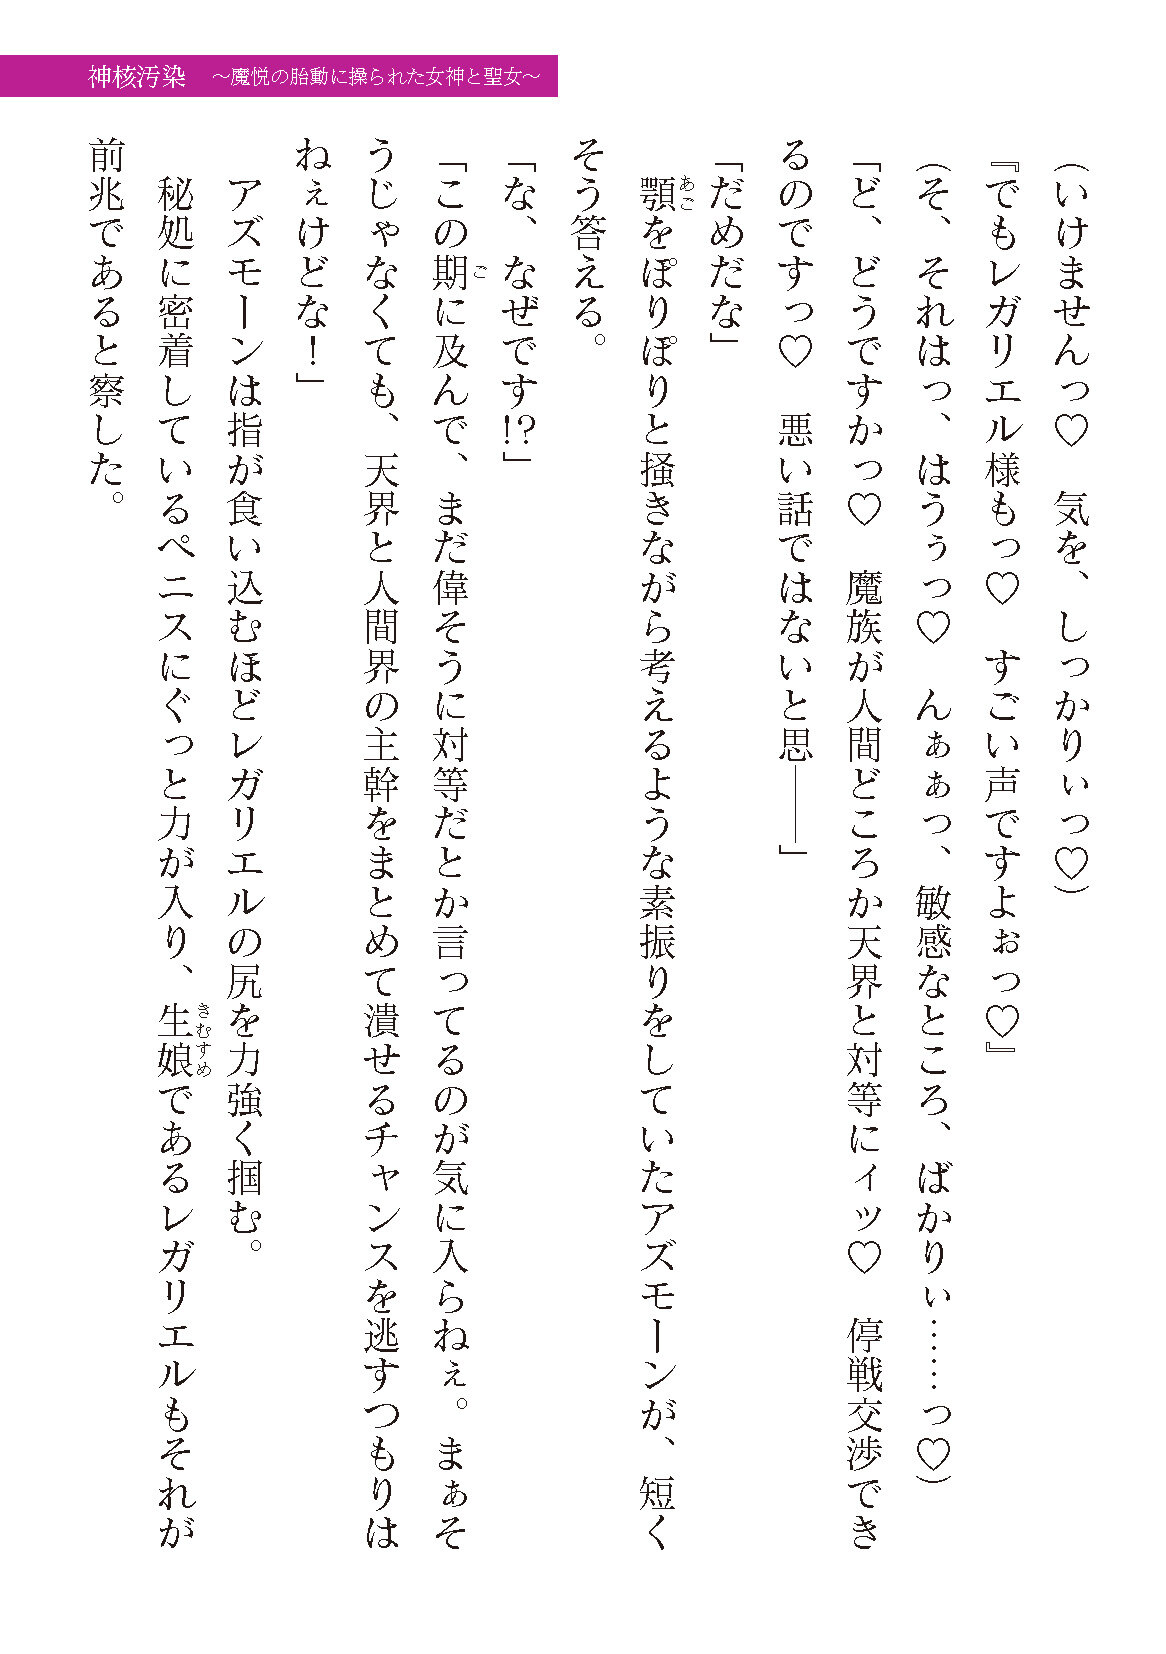 神核汚染　～魔悦の胎動に操られた女神と聖女～
（いけませんっ♡　気を、しっかりぃっ♡）
『でもレガリエル様もっ♡　すごい声ですよぉっ♡』
（そ、それはっ、はうぅっ♡　んぁぁっ、敏感なところ、ばかりぃ……っ♡）
「ど、どうですかっ♡　魔族が人間どころか天界と対等にィッ♡　停戦交渉でき
るのですっ♡　悪い話ではないと思――」
「だめだな」
顎あごをぽりぽりと掻きながら考えるような素振りをしていたアズモーンが、短く
そう答える。
「な、なぜです!?」
「この期ごに及んで、まだ偉そうに対等だとか言ってるのが気に入らねぇ。まぁそ
うじゃなくても、天界と人間界の主幹をまとめて潰せるチャンスを逃すつもりは
ねぇけどな！」
アズモーンは指が食い込むほどレガリエルの尻を力強く掴む。
秘処に密着しているペニスにぐっと力が入り、生娘きむすめであるレガリエルもそれが
前兆であると察した。